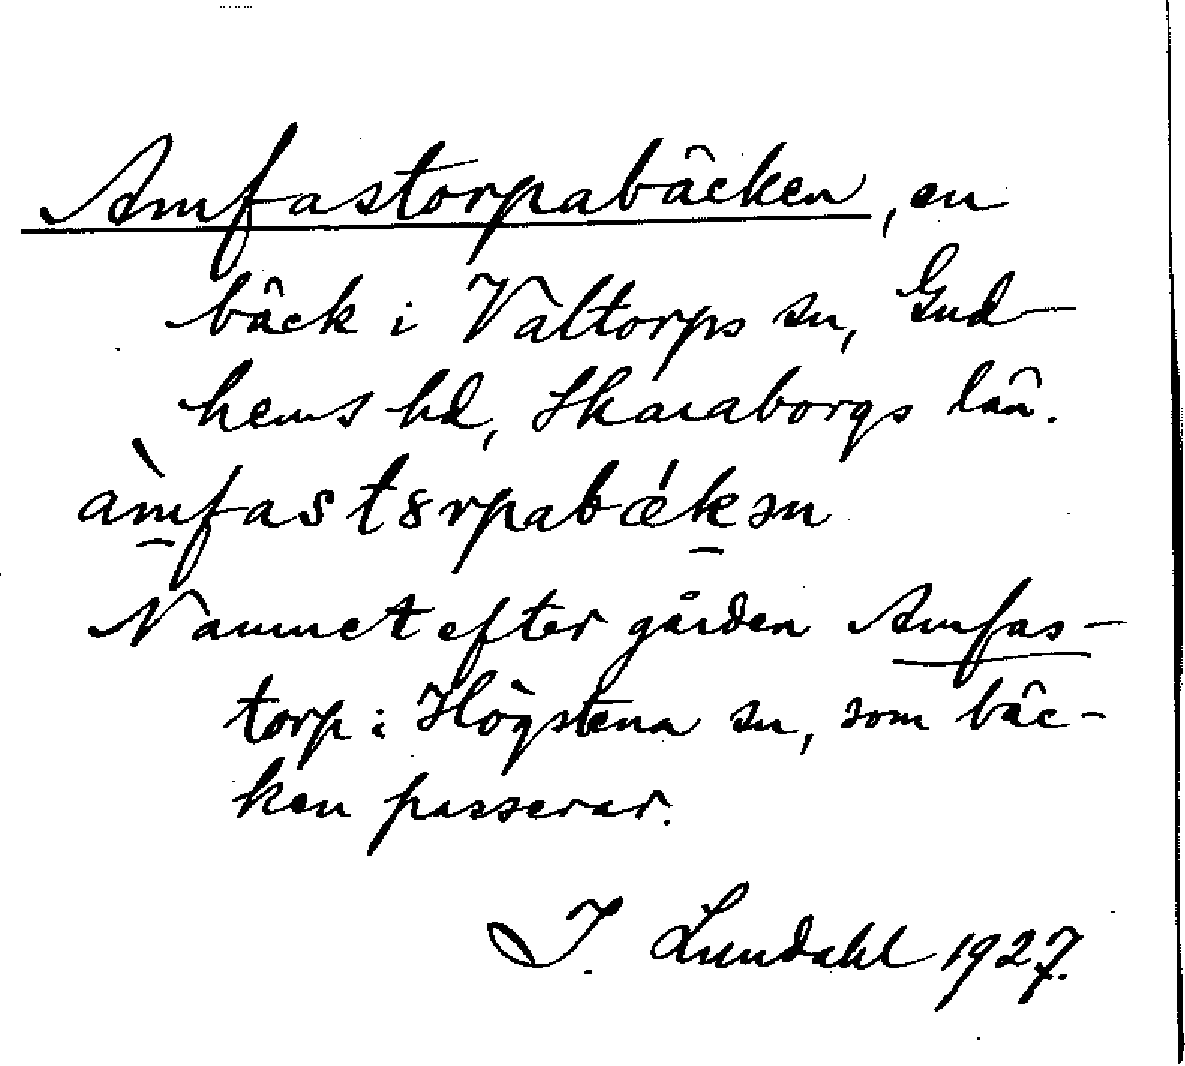 Amfastorpabäcken, en
bäck i Valtorps sn, Gud-
hems hd, Skaraborgs län.
àmfast8rpabǽkən
Namnet efter gården Amfas-
torp i Högstena sn, som bäc-
ken passerar.
I. Lundahl 1927.